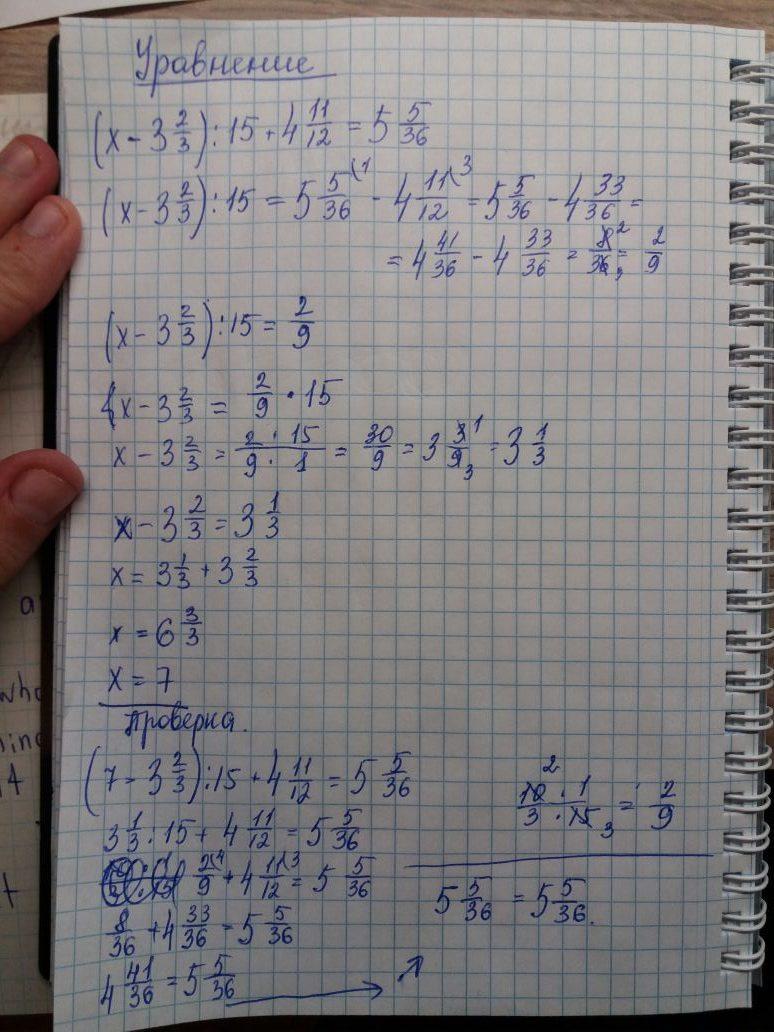 Уравнение
(x - 3 2/3) : 15 + 4 11/12 = 5 5/36
(x - 3 2/3) : 15 = 5 5/36 (1 - 4 11/12 (3 = 5 5/36 - 4 33/36 =
= 4 41/36 - 4 33/36 = 8/36 2/9 = 2/9
(x - 3 2/3) : 15 = 2/9
x - 3 2/3 = 2/9 · 15
x - 3 2/3 = 2 · 15 / 9 · 1 = 30/9 = 3 3/9 1/3 = 3 1/3
x - 3 2/3 = 3 1/3
x = 3 1/3 + 3 2/3
x = 6 3/3
x = 7
Проверка.
(7 - 3 2/3) : 15 + 4 11/12 = 5 5/36
3 1/3 : 15 + 4 11/12 = 5 5/36
2/9 (4 + 4 11/12 (3 = 5 5/36
8/36 + 4 33/36 = 5 5/36
4 41/36 = 5 5/36
2
10 · 1 / 3 · 15 3 = 2/9
5 5/36 = 5 5/36.